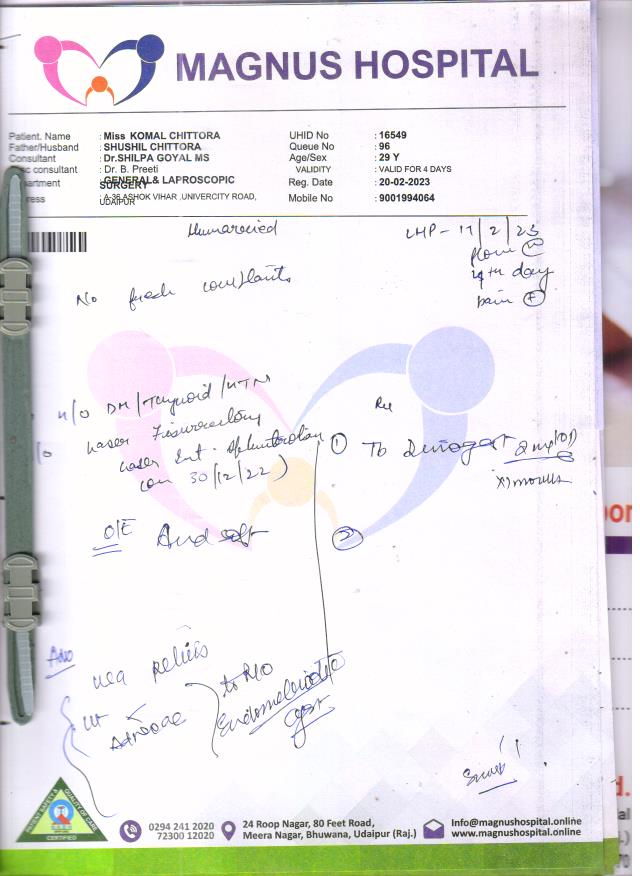 MAGNUS HOSPITAL
Patient. Name : Miss KOMAL CHITTORA UHID No : 16549
Father/Husband : SHUSHIL CHITTORA Queue No : 96
Consultant : Dr.SHILPA GOYAL MS Age/Sex : 29 Y
consultant : Dr. B. Preeti VALIDITY : VALID FOR 4 DAYS
artment : GENERAL & LAPROSCOPIC SURGERY Reg. Date : 20-02-2023
ress : A-36 ASHOK VIHAR ,UNIVERCITY ROAD, UDAIPUR Mobile No : 9001994064
Unmarried
LMP - 17/2/23
flow
4th day
pain
No fresh complaints
H/O DM/Thyroid/HTN
Laser
Laser Int. Sphincterotomy
on 30/12/22)
O/E
Rx
① Tb Dinogest 2 mg OD
x 1 months
②
Adv
USG pelvis
to R/O
Endometriotic
cyst
0294 241 2020
72300 12020
24 Roop Nagar, 80 Feet Road,
Meera Nagar, Bhuwana, Udaipur (Raj.)
Info@magnushospital.online
www.magnushospital.online
PATIENT SAFETY & QUALITY OF CARE
CERTIFIED